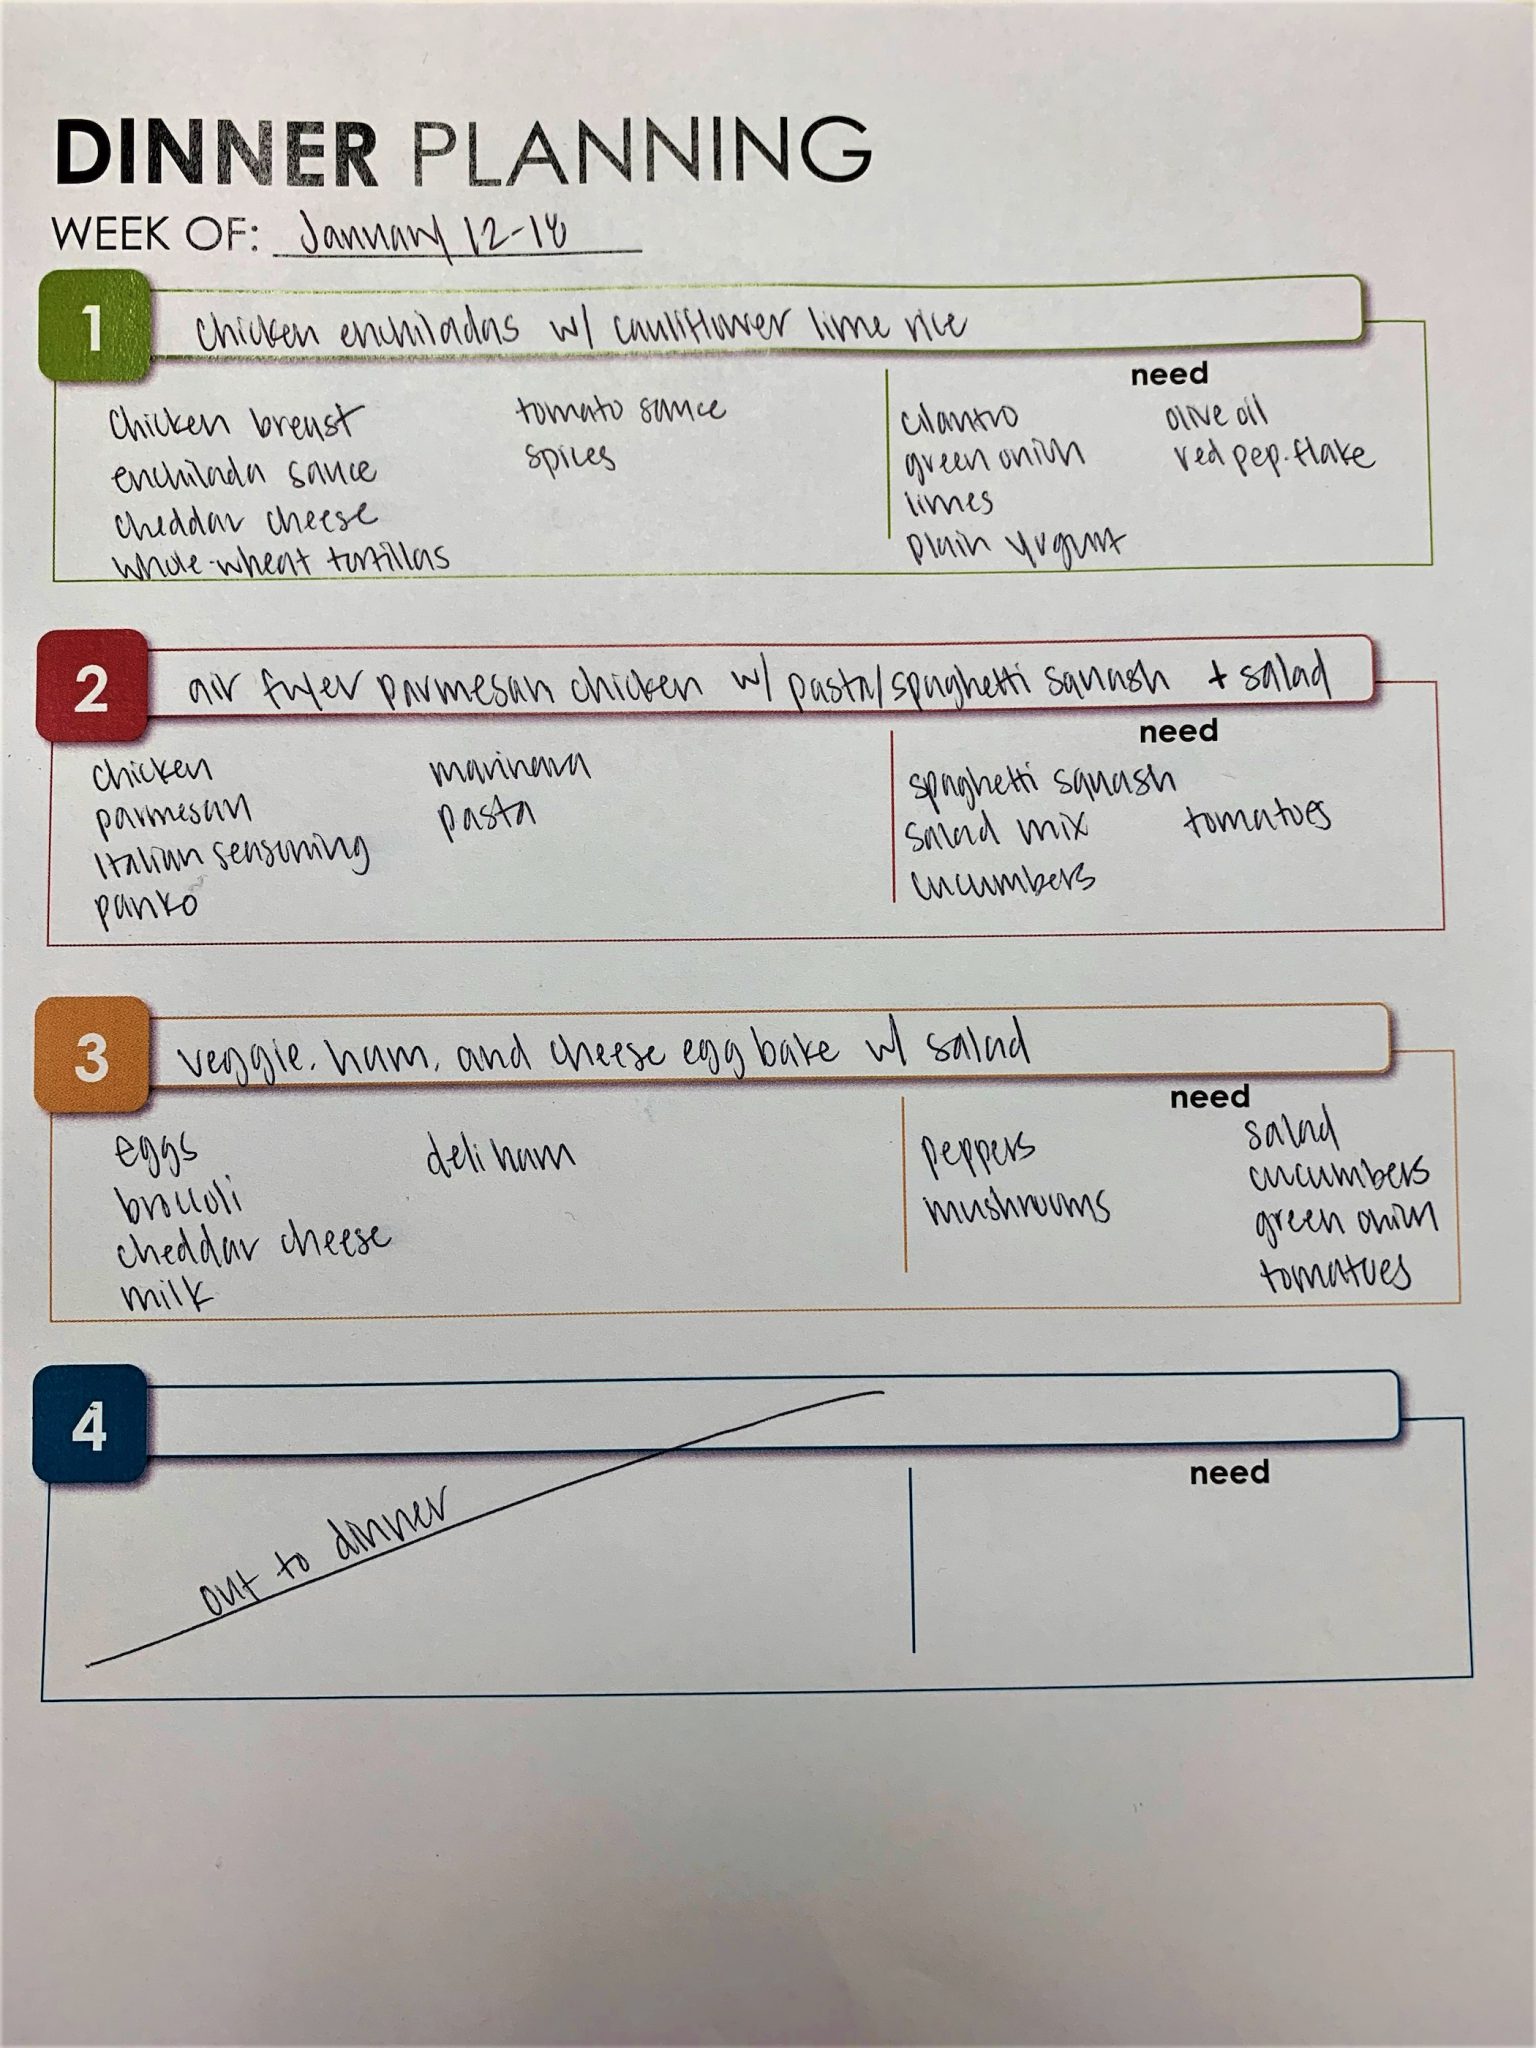 DINNER PLANNING
WEEK OF: January 12-18
1
chicken enchiladas w/ cauliflower lime rice
need
chicken breast
enchilada sauce
cheddar cheese
whole-wheat tortillas
tomato sauce
spices
cilantro
green onion
limes
plain yogurt
olive oil
red pep. flake
2
air fryer parmesan chicken w/ pasta/spaghetti squash + salad
need
chicken
parmesan
Italian seasoning
panko
marinara
pasta
spaghetti squash
salad mix
cucumbers
tomatoes
3
veggie, ham, and cheese egg bake w/ salad
need
eggs
broccoli
cheddar cheese
milk
deli ham
peppers
mushrooms
salad
cucumbers
green onion
tomatoes
4
need
out to dinner